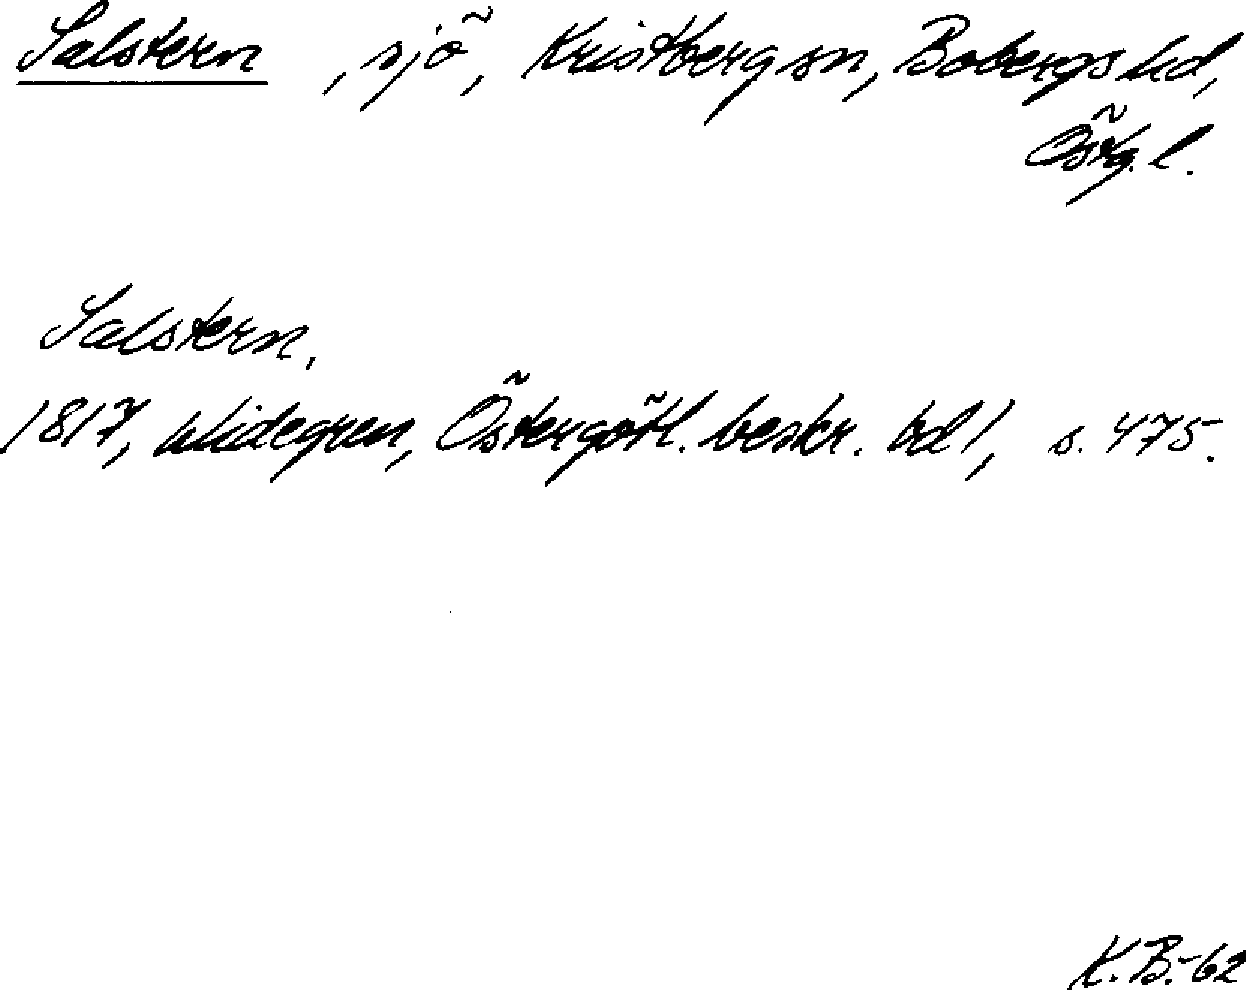 Salstern, sjö, Kristberg sn, Bobergs hd,
Östg. l.
Salstern,
1817, Widegren, Östergötl. beskr. bd 1, s. 475.
K.B.-62